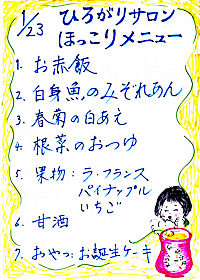 1/23 ひろがりサロン
ほっこりメニュー
1. お赤飯
2. 白身魚のみぞれあん
3. 春菊の白あえ
4. 根菜のおつゆ
5. 果物：ラ・フランス
パイナップル
いちご
6. 甘酒
7. おやつ：お誕生ケーキ